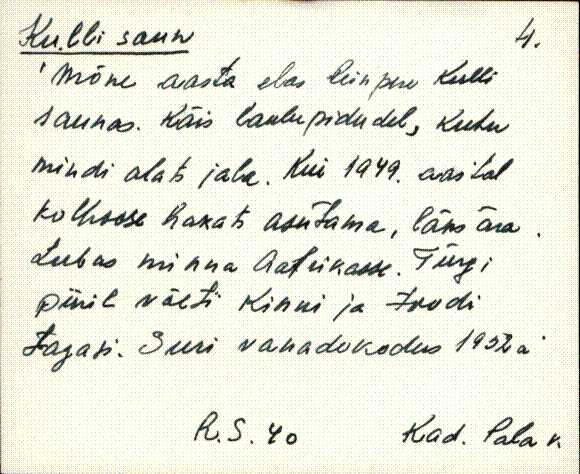 Kulli saun 4.
Mõne aasta elas Kulli
saunas. Käis laulupidudel, kuhu
mindi alati jala. Kui 1949. aastal
kolhoose hakati asutama, läks ära.
Lubas minna Aafrikasse. Türgi
piiril võeti kinni ja toodi
tagasi. Suri vanadekodus 1952 a
R.S. 40 Kad. Pala v.